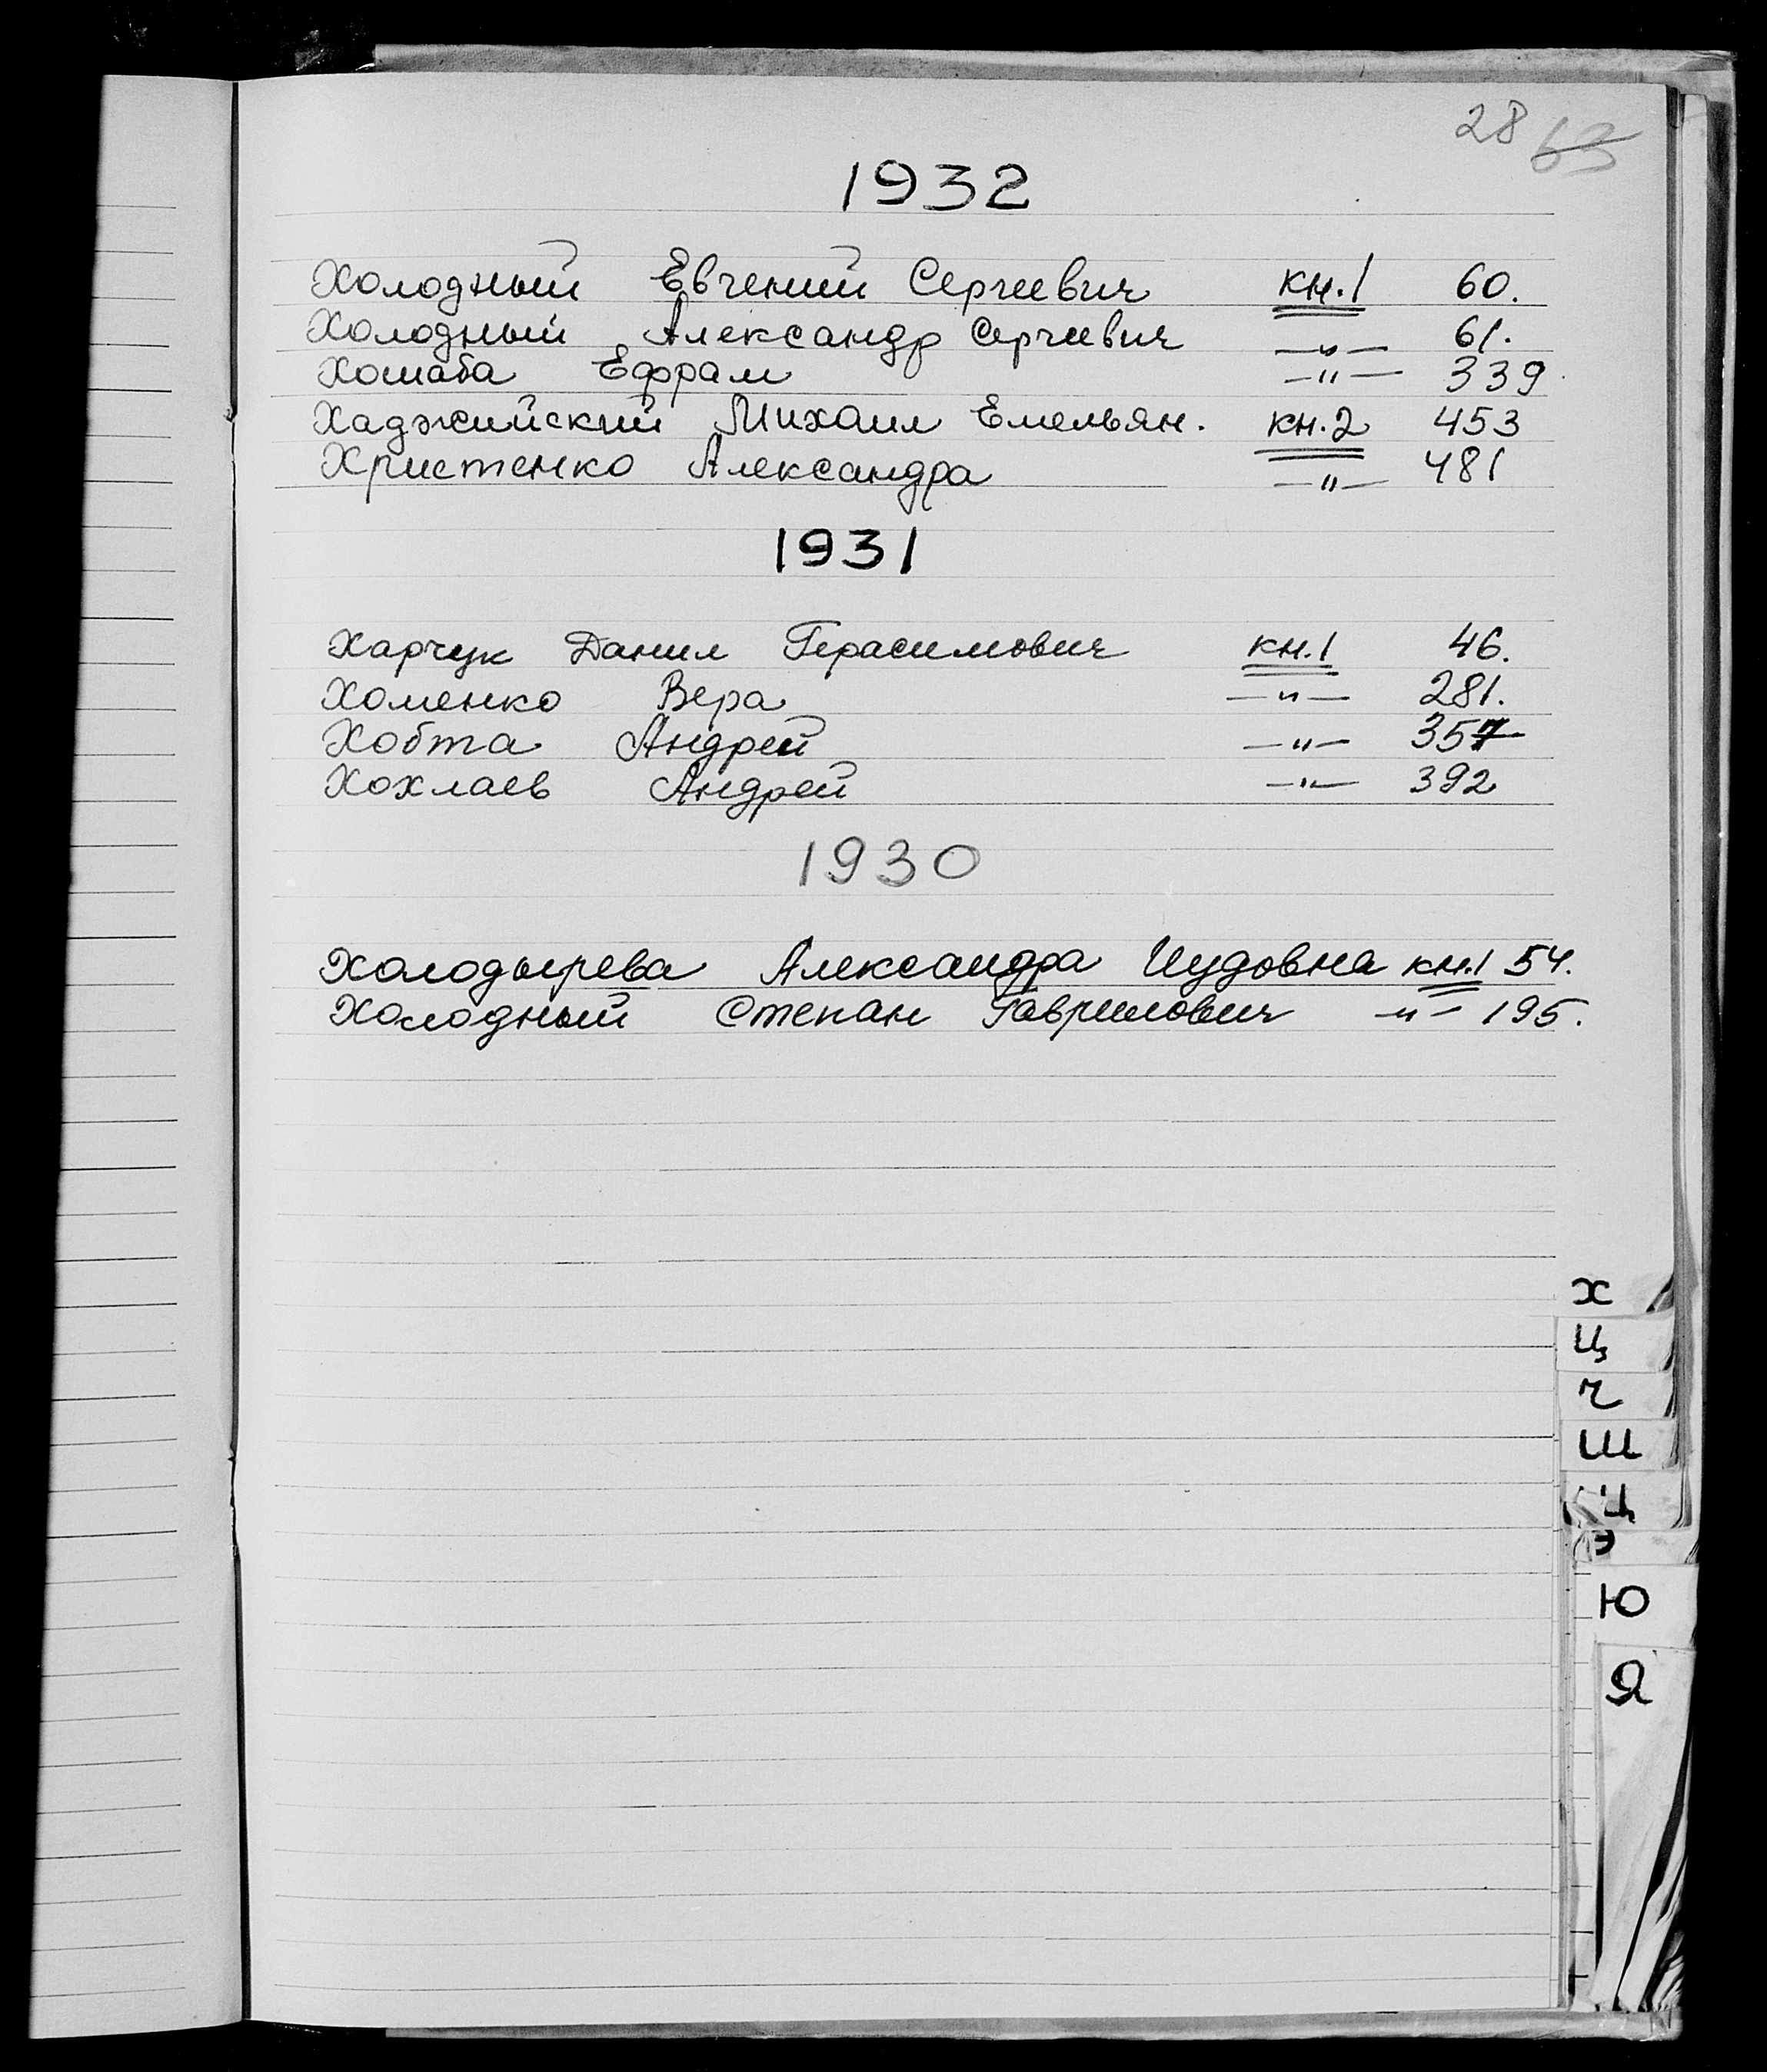 28 63
1932
Холодный Евгений Сергеевич кн.1 60.
Холодный Александр Сергеевич —"— 61.
Хомаба Ефрам —"— 339
Хаджийский Михаил Емельян. кн.2 453
Христенко Александра —"— 481
1931
Харчук Данил Герасимович кн.1 46.
Хоменко Вера —"— 281.
Хобта Андрей —"— 357
Хохлаев Андрей —"— 392
1930
Холодырева Александра Иудовна кн.1 54.
Холодный Степан Гаврилович —"— 195.
Х
Ц
Ч
Ш
Щ
Э
Ю
Я